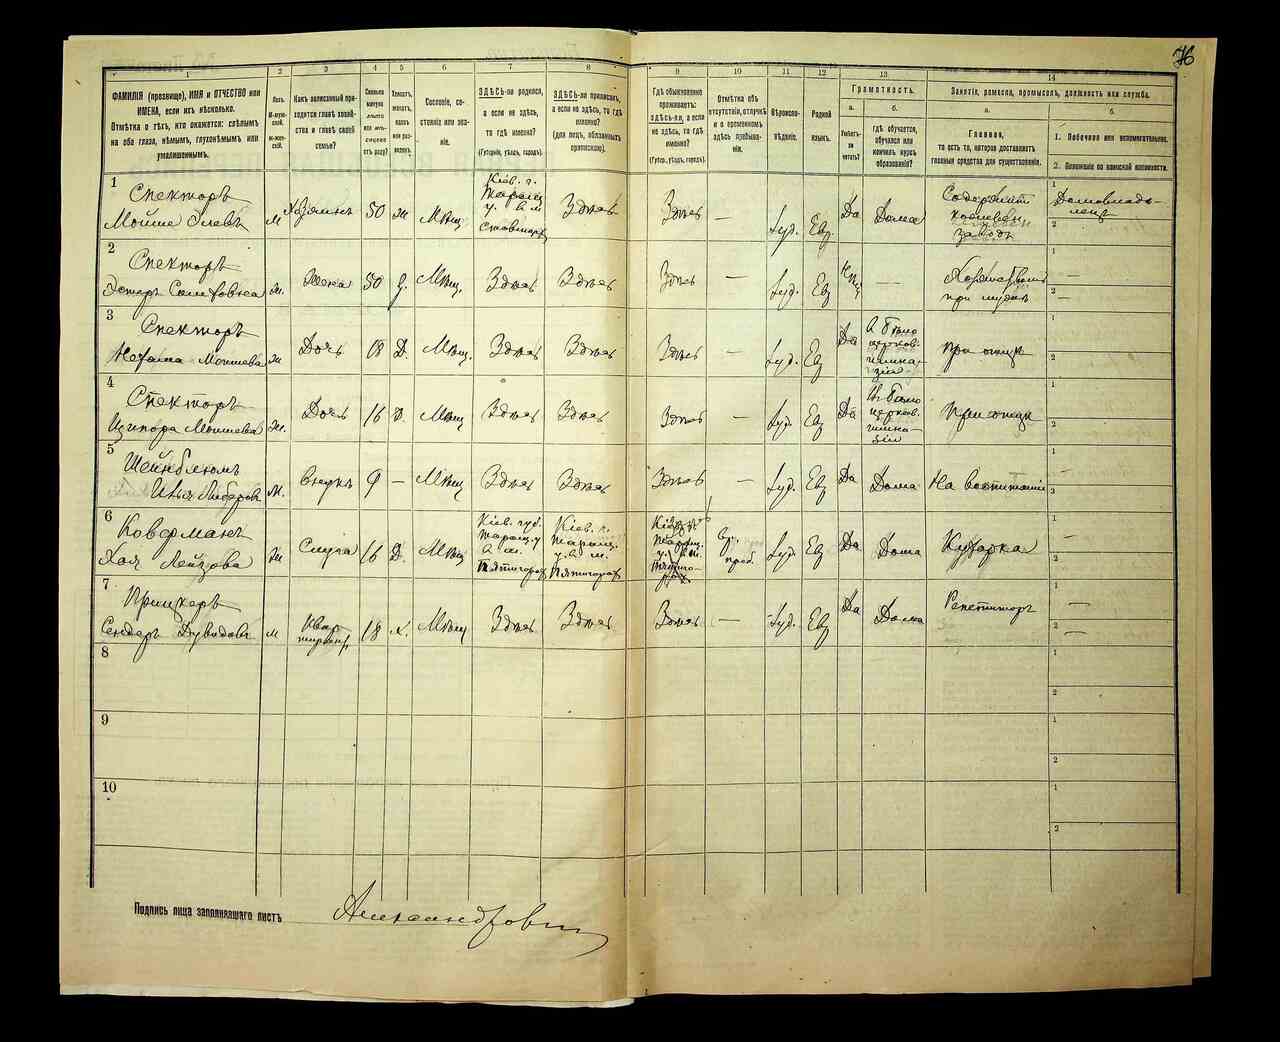 76
1
2
3
4
5
6
7
8
9
10
11
12
13
14
ФАМИЛІЯ (прозвище), ИМЯ и ОТЧЕСТВО или
ИМЕНА, если ихъ нѣсколько.
Отмѣтка о тѣхъ, кто окажется: слѣпымъ
на оба глаза, нѣмымъ, глухонѣмымъ или
умалишеннымъ.
Полъ.
М-муж-
ской.
Ж-жен-
скій.
Какъ записанный при-
ходится главѣ хозяй-
ства и главѣ своей
семьи?
Сколько
минуло
лѣтъ
или мѣ-
сяцевъ
отъ роду?
Холостъ,
женатъ,
вдовъ
или раз-
веденъ.
Сословіе, со-
стояніе или зва-
ніе.
ЗДѢСЬ-ли родился,
а если не здѣсь,
то гдѣ именно?
(Губернія, уѣздъ, городъ).
ЗДѢСЬ-ли приписанъ,
а если не здѣсь, то гдѣ
именно?
(для лицъ, обязанныхъ
припискою).
Гдѣ обыкновенно
проживаетъ:
здѣсь-ли, а если
не здѣсь, то гдѣ
именно?
(Губ., уѣздъ, городъ).
Отмѣтка объ
отсутствіи, отлучкѣ
и о временномъ
здѣсь пребыва-
ніи.
Вѣроиспо-
вѣданіе.
Родной
языкъ.
Грамотность.
а.
Умѣетъ-
ли
читать?
б.
гдѣ обучается,
обучался или
кончилъ курсъ
образованія?
Занятіе, ремесло, промыселъ, должность или служба.
а.
Главное,
то есть то, которое доставляетъ
главныя средства для существованія.
б.
1. Побочное или вспомогательное.
2. Положеніе по воинской повинности.
1
Спекторъ
Мойше Элевъ
М
Хозяинъ
50
ж
Мѣщ.
Кіев. г.
Таращ.
у. в м
Ставищахъ
Здѣсь
Здѣсь
—
Іуд.
Евр.
Да
Дома
Содержит
заводъ
1
Домовладѣ-
лецъ
2
2
Спекторъ
ж.
Жена
50
Мѣщ.
Здѣсь
Здѣсь
Здѣсь
—
Іуд.
Евр
—
при мужѣ
1
—
2
—
3
Спекторъ
Нехама Мошкова
ж
Дочь
18
Д.
Мѣщ.
Здѣсь
Здѣсь
Здѣсь
—
Іуд.
Евр
Да
в Бѣло
церков.
гимна-
зіи
при отцѣ
1
2
4
Спекторъ
Ципора Мошкова
ж.
Дочь
16
Д.
Мѣщ
Здѣсь
Здѣсь
Здѣсь
—
Іуд.
Евр
Да
въ Бѣло
церков.
гимна-
зіи
При отцѣ
1
2
5
Шейнблюмъ
м.
внукъ
9
—
Мѣщ
Здѣсь
Здѣсь
Здѣсь
—
Іуд.
Евр
Да
Дома
На воспитаніи
1
—
2
6
Коверманъ
Хая Лейзова
ж
Слуга
16
Д.
Мѣщ
Кіев. губ.
Таращ. у
в м.
Пятигорахъ
Кіев. г.
Таращ.
у. в м.
Пятигорахъ
Вр.
преб.
Іуд.
Евр
Да
Дома
Кухарка
1
—
2
7
Прицкеръ
Сендеръ Дувидовъ
м
Квар
тирант
18
х.
Мѣщ
Здѣсь
Здѣсь
Здѣсь
—
Іуд.
Евр
Да
Дома
Репетиторъ
1
—
2
—
8
1
2
9
1
2
10
1
2
Подпись лица заполнявшаго листъ
Александрович